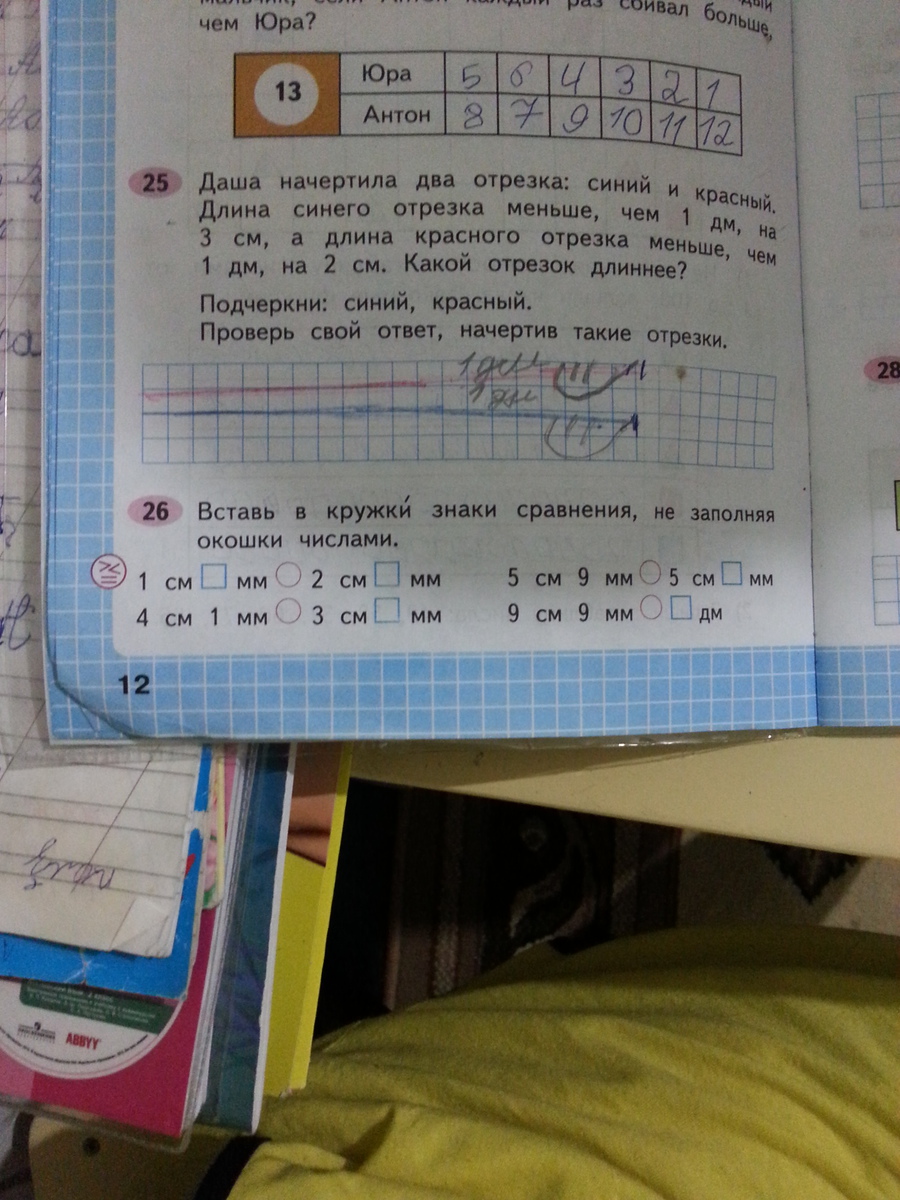 чем Юра?
13 Юра 5 6 4 3 2 1
Антон 8 7 9 10 11 12
25 Даша начертила два отрезка: синий и красный.
Длина синего отрезка меньше, чем 1 дм, на
3 см, а длина красного отрезка меньше, чем
1 дм, на 2 см. Какой отрезок длиннее?
Подчеркни: синий, красный.
Проверь свой ответ, начертив такие отрезки.
1 дм
1 дм
26 Вставь в кружки́ знаки сравнения, не заполняя
окошки числами.
1 см □ мм ○ 2 см □ мм 5 см 9 мм ○ 5 см □ мм
4 см 1 мм ○ 3 см □ мм 9 см 9 мм ○ □ дм
12
28
ABBYY